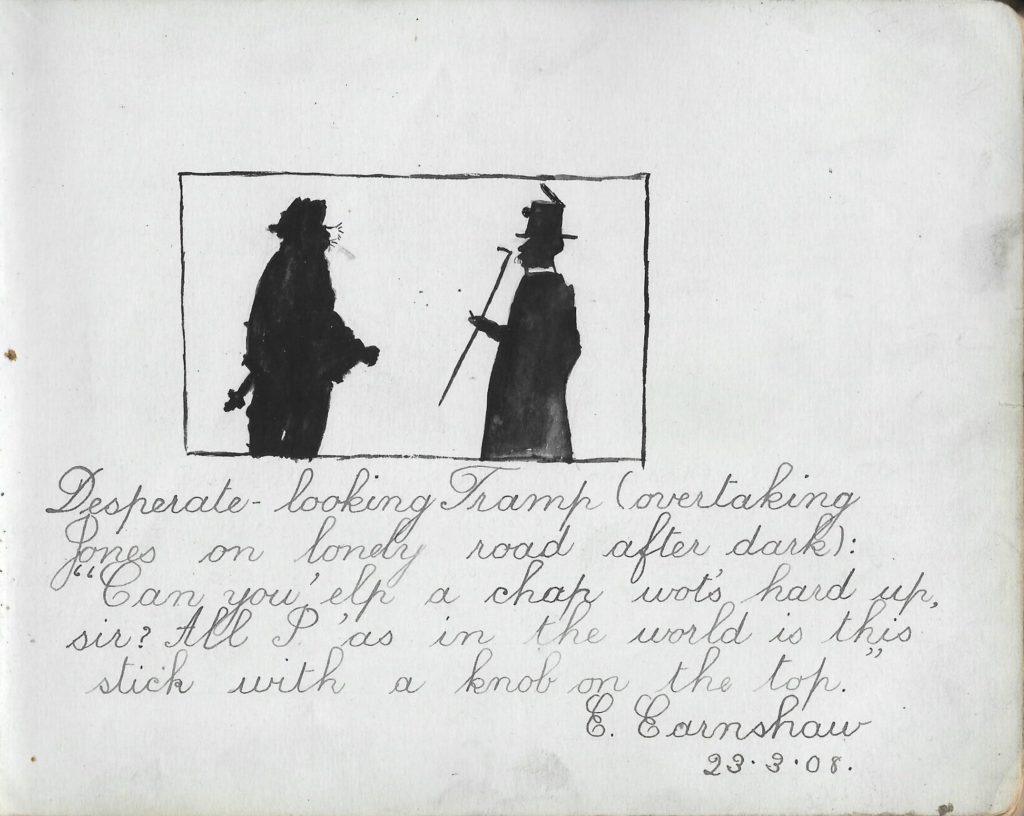 Desperate-looking Tramp (overtaking
Jones on lonely road after dark):
"Can you 'elp a chap wot's hard up,
sir? All I 'as in the world is this
stick with a knob on the top."
E. Earnshaw
23.3.08.